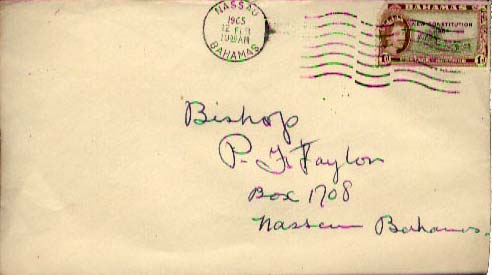 NASSAU
1965
12 FEB
BAHAMAS
BAHAMAS
NEW CONSTITUTION
1964
1d 1d
Bishop
P. F. Taylor
Box 1708
Nassau Bahamas.